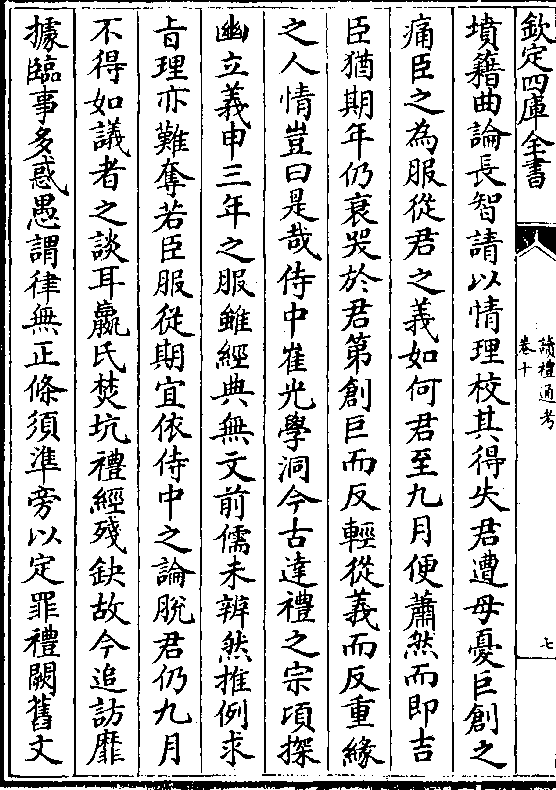 欽定四庫全書
讀禮通考
卷十
七
墳籍曲論長智請以情理校其得失君遭母憂巨創之
痛臣之為服從君之義如何君至九月便蕭然而即吉
臣猶期年仍衰哭於君第創巨而反輕從義而反重緣
之人情豈曰是哉侍中崔光學洞今古達禮之宗頃探
幽立義申三年之服雖經典無文前儒未辨然推例求
旨理亦難奪若臣服從期宜依侍中之論脫君仍九月
不得如議者之談耳嬴氏焚坑禮經殘缺故今追訪靡
據臨事多惑愚謂律無正條須準旁以定罪禮闕舊文